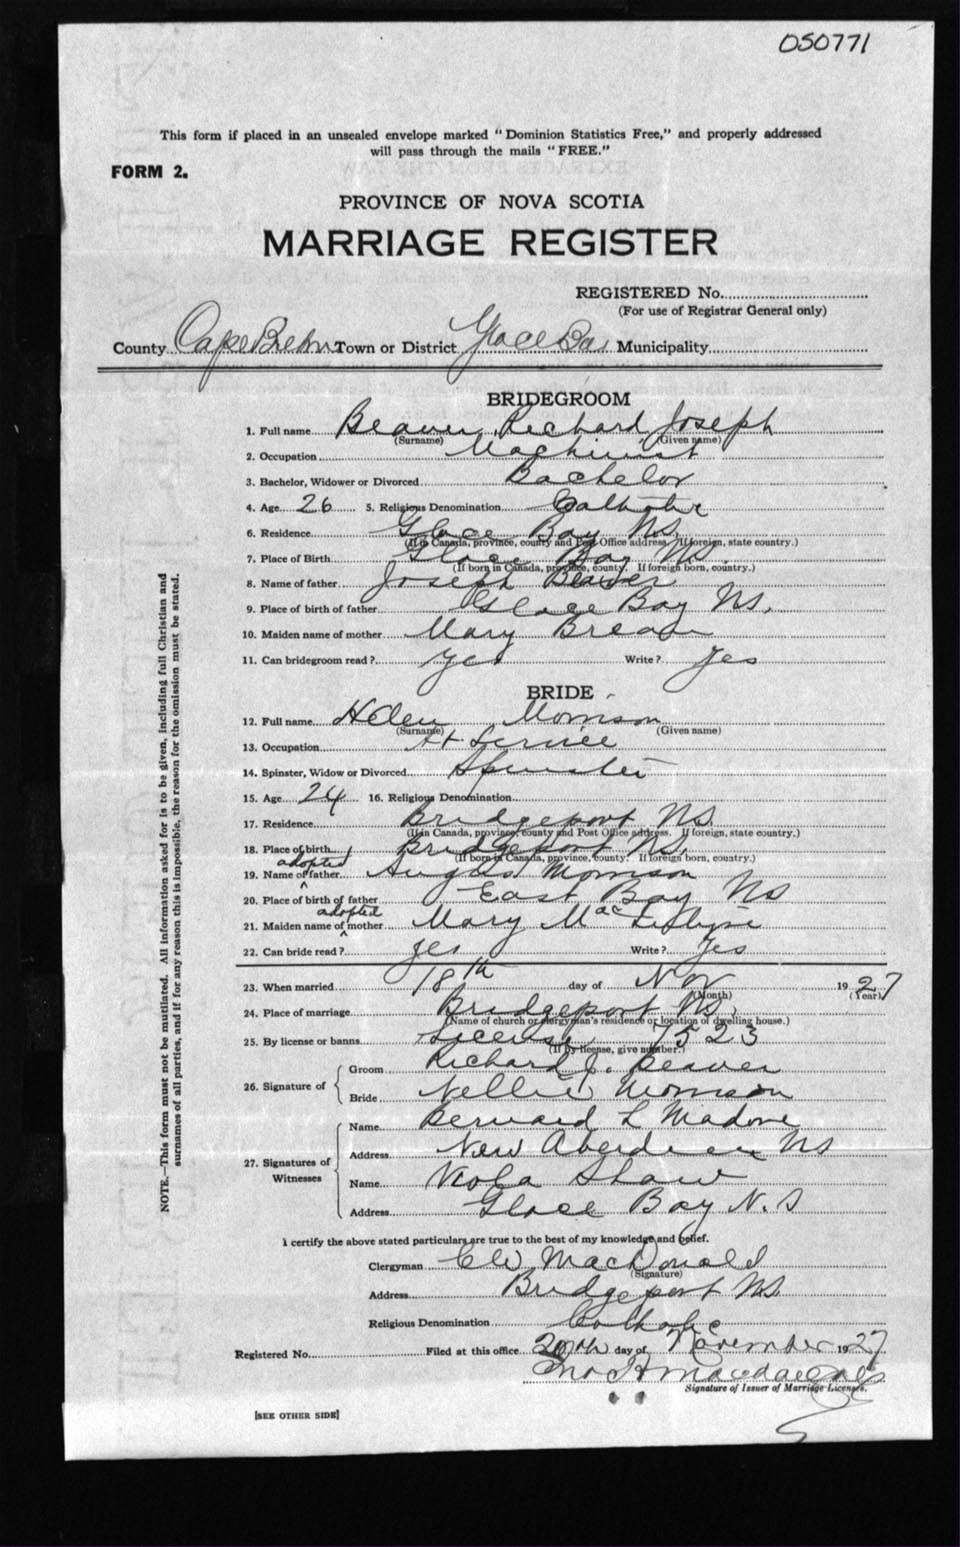 050771
This form if placed in an unsealed envelope marked "Dominion Statistics Free," and properly addressed
will pass through the mails "FREE."
FORM 2.
PROVINCE OF NOVA SCOTIA
MARRIAGE REGISTER
REGISTERED No.
(For use of Registrar General only)
County Cape Breton Town or District Glace Bay Municipality
BRIDEGROOM
1. Full name Beaver, Richard Joseph
(Surname) (Given name)
2. Occupation Machinist
3. Bachelor, Widower or Divorced Bachelor
4. Age 26 5. Religious Denomination Catholic
6. Residence Glace Bay N.S.
(If in Canada, province, county and Post Office address. If foreign, state country.)
7. Place of Birth Glace Bay N.S.
(If born in Canada, province, county. If foreign born, country.)
8. Name of father Joseph Beaver
9. Place of birth of father Glace Bay N.S.
10. Maiden name of mother Mary
11. Can bridegroom read? Yes Write? Yes
BRIDE
12. Full name Helen Morrison
(Surname) (Given name)
13. Occupation At Service
14. Spinster, Widow or Divorced Spinster
15. Age 24 16. Religious Denomination
17. Residence Bridgeport N.S.
(If in Canada, province, county and Post Office address. If foreign, state country.)
18. Place of birth Bridgeport N.S.
(If born in Canada, province, county. If foreign born, country.)
adopted
19. Name of father Angus Morrison
20. Place of birth of father East Bay N.S
adopted
21. Maiden name of mother Mary
22. Can bride read? yes Write? Yes
23. When married 18th day of Nov 1927
(Month) (Year)
24. Place of marriage Bridgeport N.S.
(Name of church or clergyman's residence or location of dwelling house.)
25. By license or banns License 7523
(If by license, give number.)
26. Signature of
Groom Richard J. Beaver
Bride Nellie Morrison
27. Signatures of Witnesses
Name Bernard L Madore
Address New Aberdeen N.S
Name Viola Shaw
Address Glace Bay N.S
I certify the above stated particulars are true to the best of my knowledge and belief.
Clergyman C W MacDonald
(Signature)
Address Bridgeport N.S.
Religious Denomination Catholic
Registered No. Filed at this office 20th day of November 1927
Signature of Issuer of Marriage Licenses.
[SEE OTHER SIDE]
NOTE.—This form must not be mutilated. All information asked for is to be given, including full Christian and
surnames of all parties, and if for any reason this is impossible, the reason for the omission must be stated.